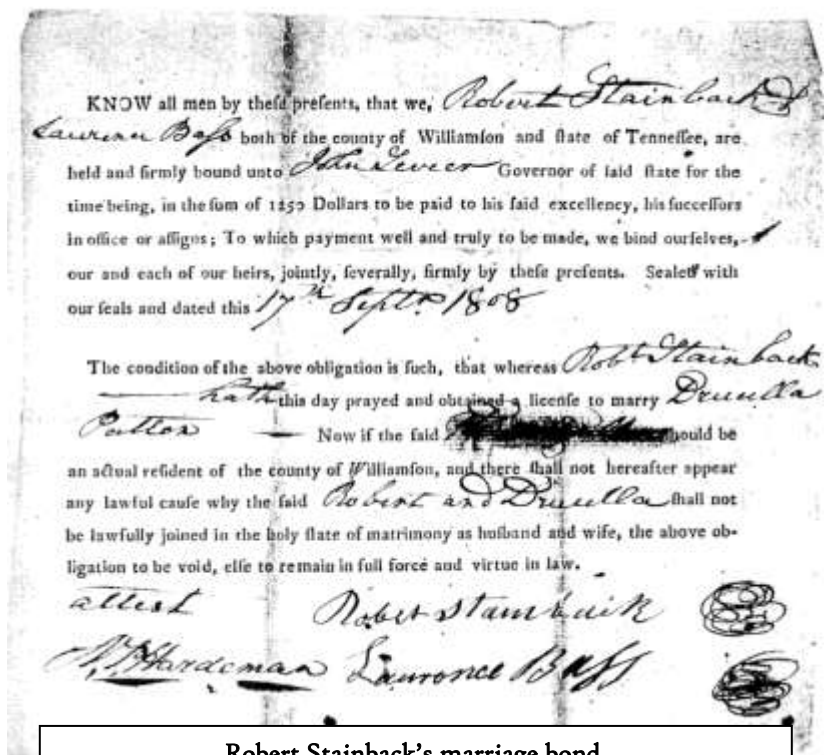 KNOW all men by theſe preſents, that we, Robert Stainback &
Laurence Baſs both of the county of Williamſon and ſtate of Tenneſſee, are
held and firmly bound unto John Sevier Governor of ſaid ſtate for the
time being, in the ſum of 1250 Dollars to be paid to his ſaid excellency, his ſucceſſors
in office or aſſigns; To which payment well and truly to be made, we bind ourſelves,
our and each of our heirs, jointly, ſeverally, firmly by theſe preſents. Sealed with
our ſeals and dated this 17th Septr 1808
The condition of the above obligation is ſuch, that whereas Robt Stainback
hath this day prayed and obtained a licenſe to marry Drucilla
Patton — Now if the ſaid should be
an actual reſident of the county of Williamſon, and there ſhall not hereafter appear
any lawful cauſe why the ſaid Robert and Drucilla ſhall not
be lawfully joined in the holy ſtate of matrimony as huſband and wife, the above ob-
ligation to be void, elſe to remain in full force and virtue in law.
attest Robert Stainback
N. P. Hardeman Laurence Bass
Robert Stainback's marriage bond